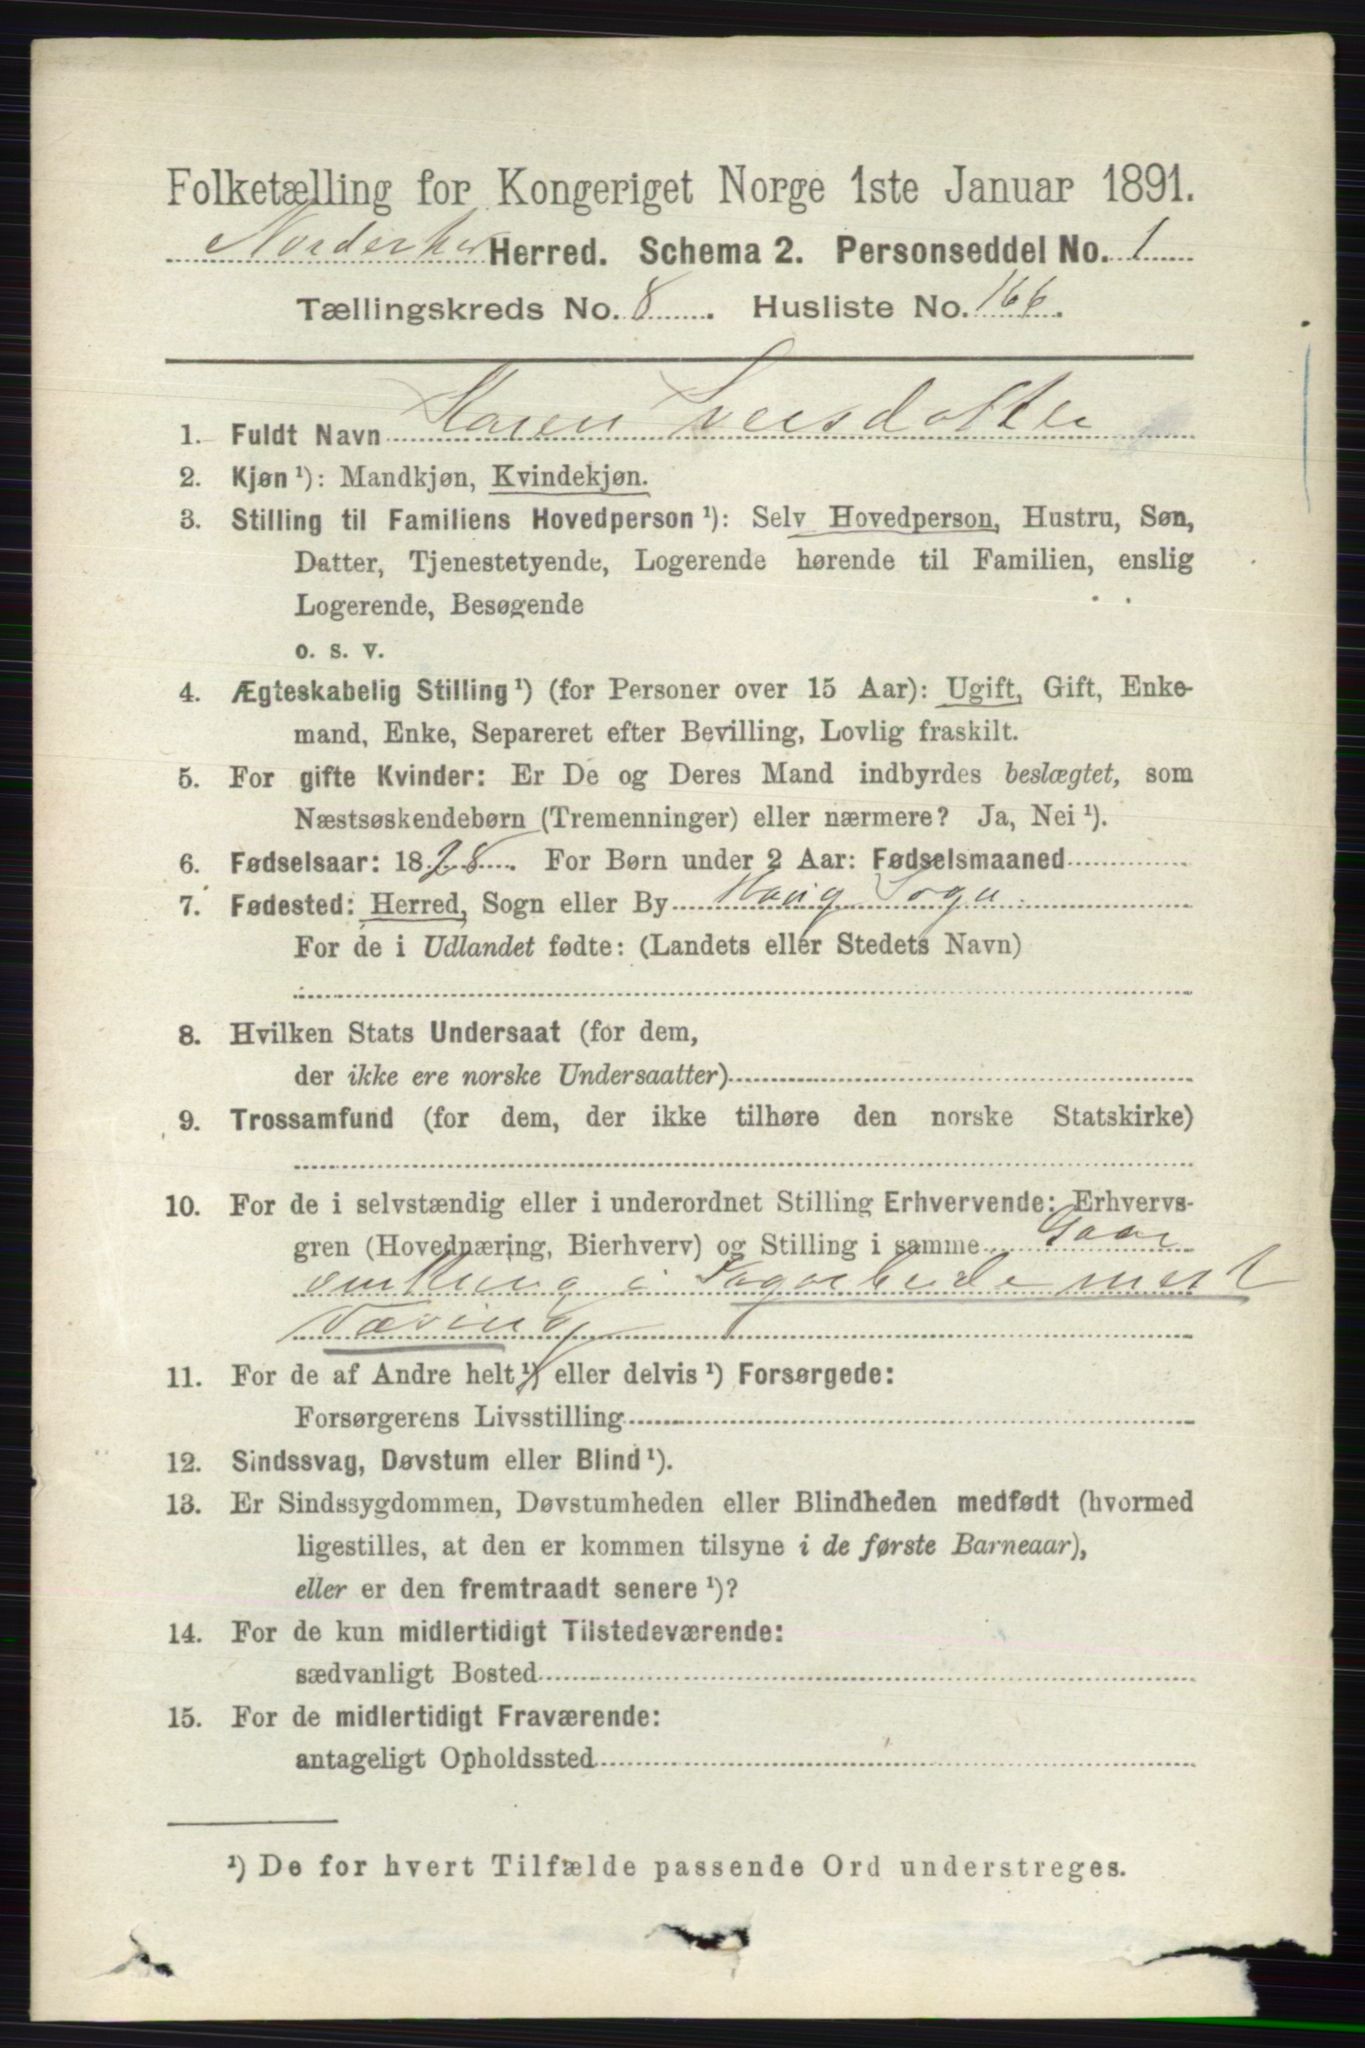 Folketælling for Kongeriget Norge 1ste Januar 1891.
Norderhov Herred. Schema 2. Personseddel No. 1
Tællingskreds No. 8. Husliste No. 166.
1. Fuldt Navn Karen Iversdatter
2. Kjøn ¹): Mandkjøn, Kvindekjøn.
3. Stilling til Familiens Hovedperson ¹): Selv Hovedperson, Hustru, Søn,
Datter, Tjenestetyende, Logerende hørende til Familien, enslig
Logerende, Besøgende
o. s. v.
4. Ægteskabelig Stilling ¹) (for Personer over 15 Aar): Ugift, Gift, Enke-
mand, Enke, Separeret efter Bevilling, Lovlig fraskilt.
5. For gifte Kvinder: Er De og Deres Mand indbyrdes beslægtet, som
Næstsøskendebørn (Tremenninger) eller nærmere? Ja, Nei ¹).
6. Fødselsaar: 1828. For Børn under 2 Aar: Fødselsmaaned
7. Fødested: Herred, Sogn eller By Houg Sogn
For de i Udlandet fødte: (Landets eller Stedets Navn)
8. Hvilken Stats Undersaat (for dem,
der ikke ere norske Undersaatter)
9. Trossamfund (for dem, der ikke tilhøre den norske Statskirke)
10. For de i selvstændig eller i underordnet Stilling Erhvervende: Erhvervs-
gren (Hovednæring, Bierhverv) og Stilling i samme Gaar
omkring i Dagarbeide mest
Væving
11. For de af Andre helt ¹) eller delvis ¹) Forsørgede:
Forsørgerens Livsstilling
12. Sindssvag, Døvstum eller Blind ¹).
13. Er Sindssygdommen, Døvstumheden eller Blindheden medfødt (hvormed
ligestilles, at den er kommen tilsyne i de første Barneaar),
eller er den fremtraadt senere ¹)?
14. For de kun midlertidigt Tilstedeværende:
sædvanligt Bosted
15. For de midlertidigt Fraværende:
antageligt Opholdssted
¹) De for hvert Tilfælde passende Ord understreges.